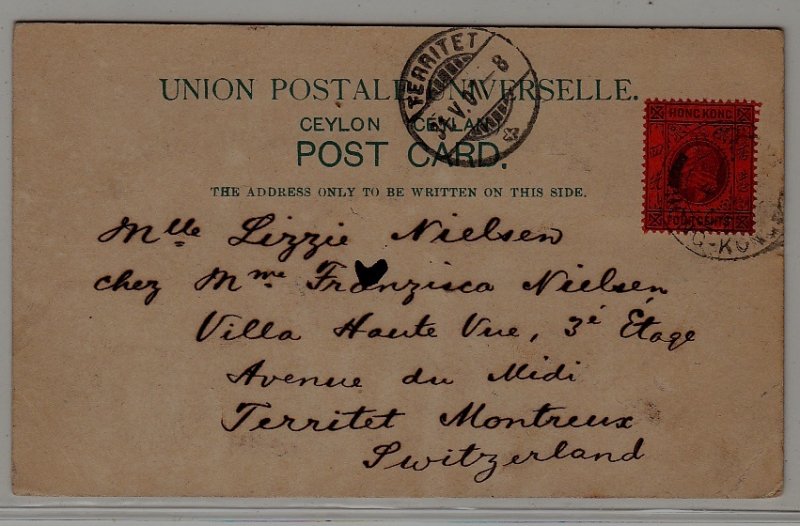 TERRITET
31.V.07-8
UNION POSTALE UNIVERSELLE.
CEYLON CEYLAN
POST CARD.
THE ADDRESS ONLY TO BE WRITTEN ON THIS SIDE.
HONG KONG
FOUR CENTS
G-KON
Mlle Lizzie Nielsen
chez Mme Franzisca Nielsen
Villa Haute Vue, 3é Étage
Avenue du Midi
Territet Montreux
Switzerland